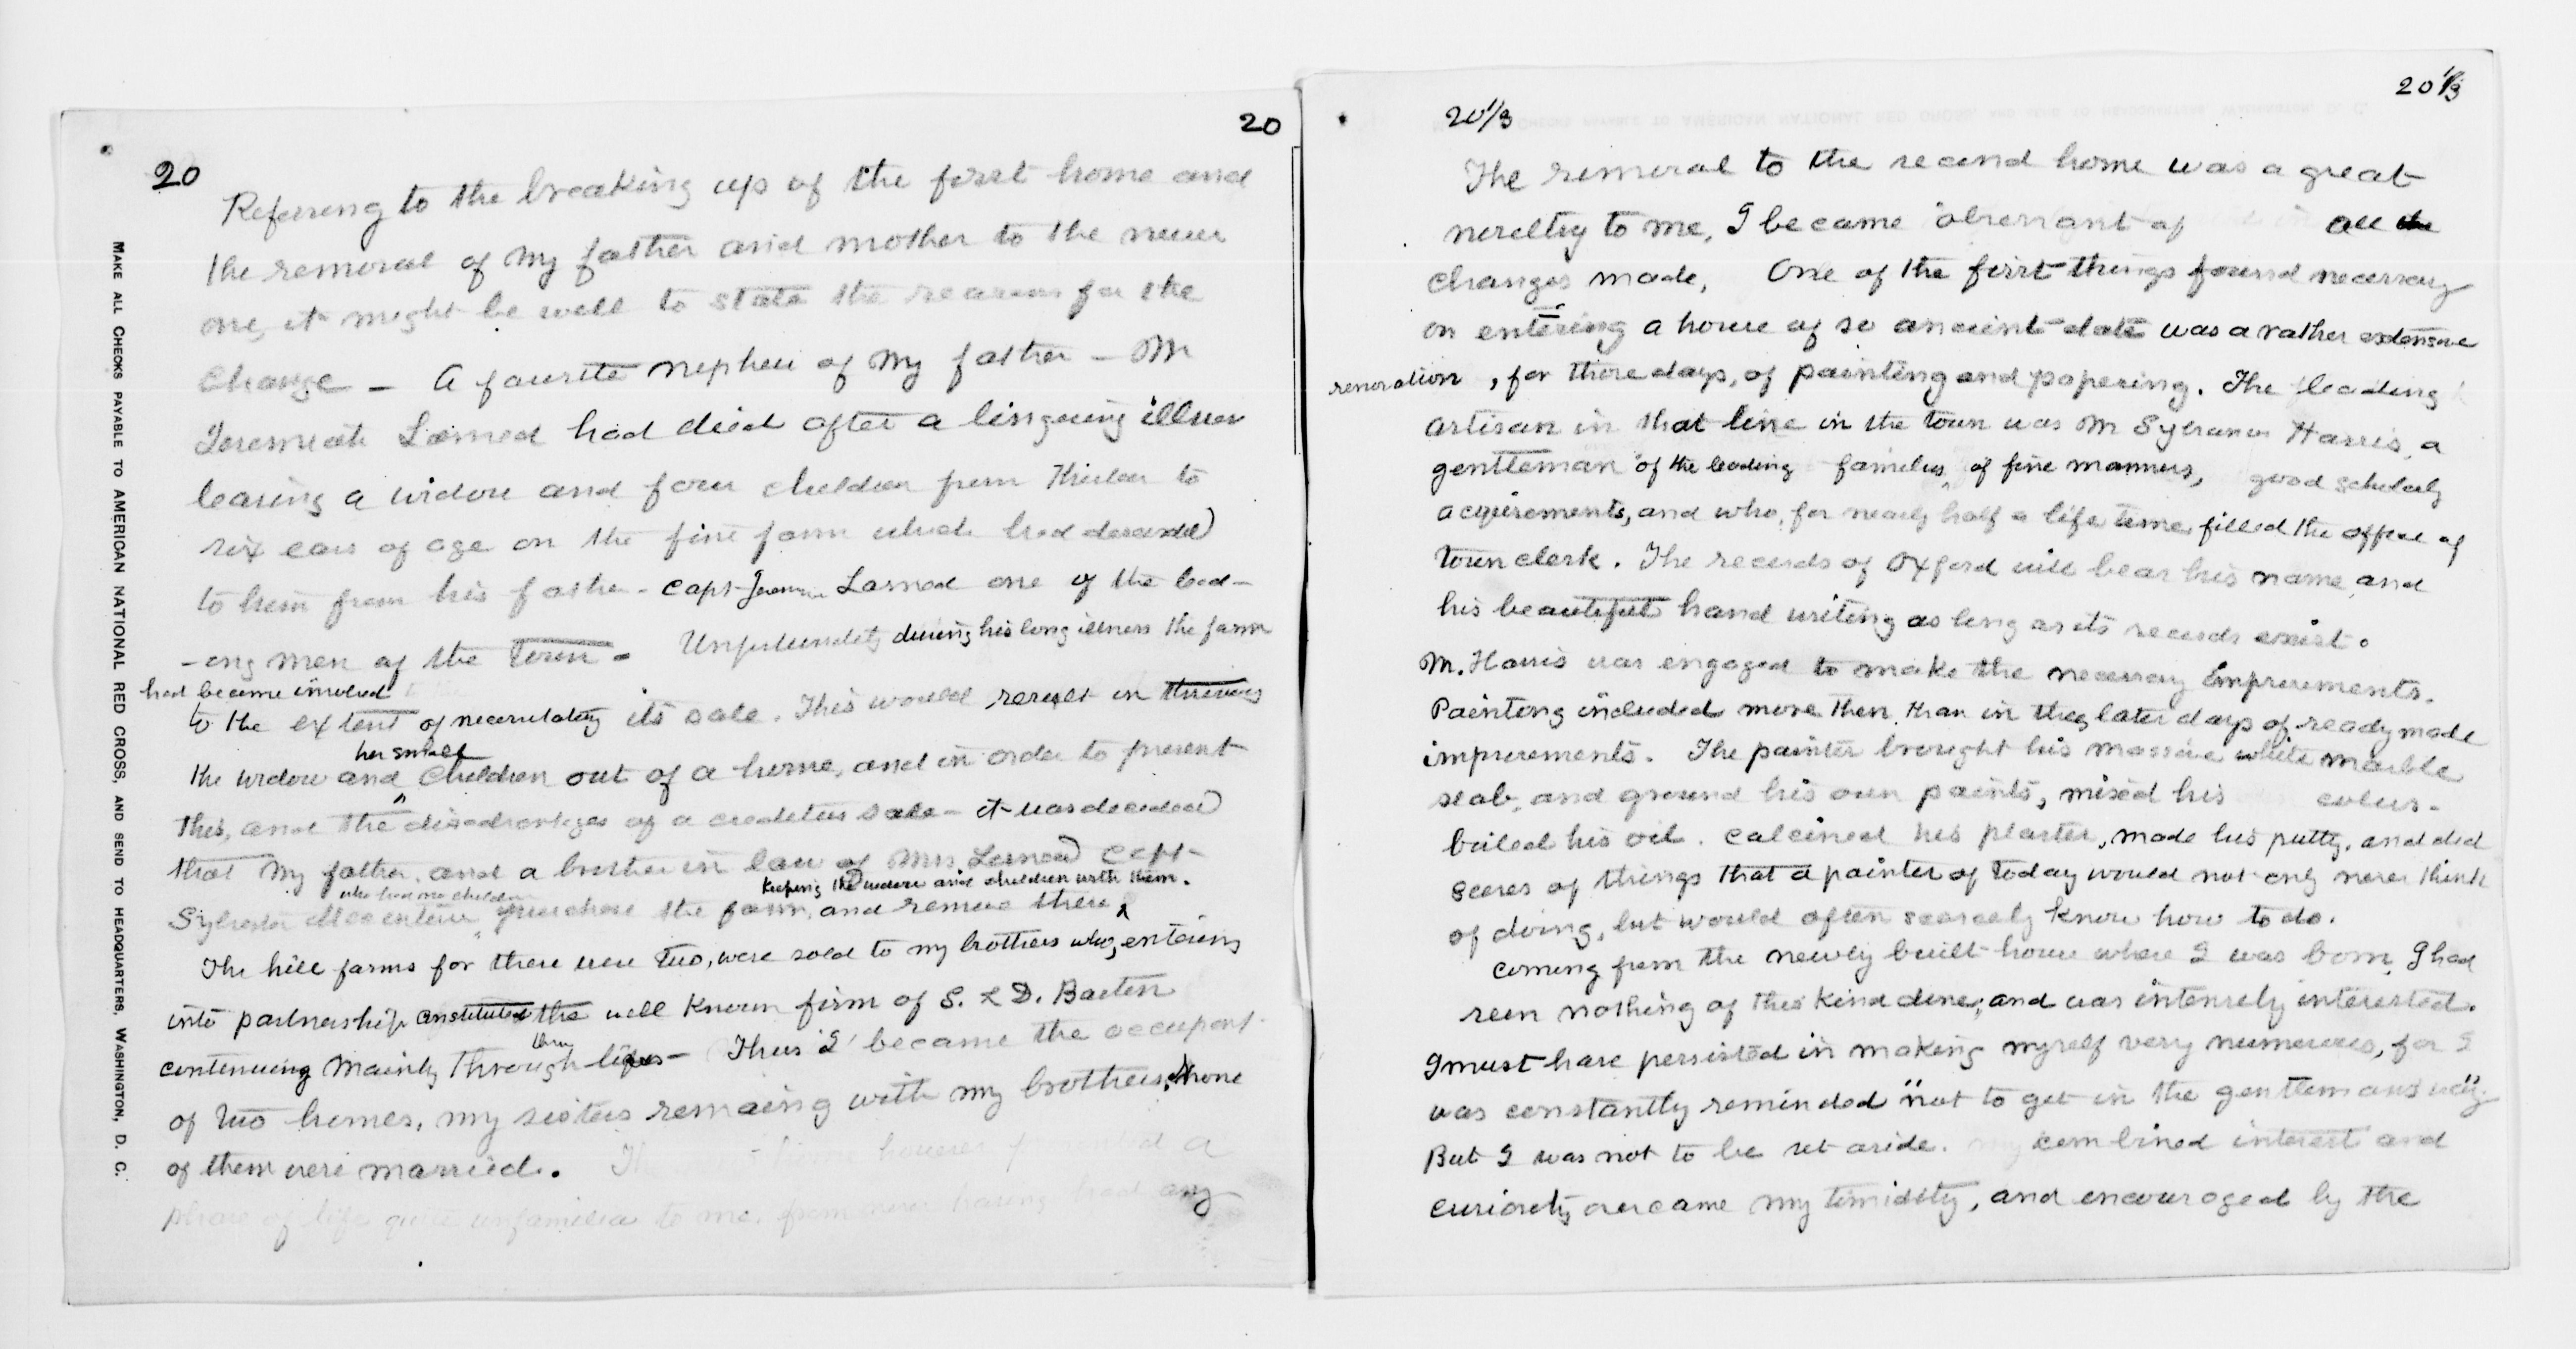 20
20
MAKE ALL CHECKS PAYABLE TO AMERICAN NATIONAL RED CROSS, AND SEND TO HEADQUARTERS, WASHINGTON, D. C.
Refering to the breaking up of the first home and
the removal of my father and mother to the newer
one, it might be well to state the reasons for the
change - A favorite nephew of my father - Mr
Jeremiah Larned had died after a lingering illness
leaving a widow and four children from thirteen to
six ears of age on the fine farm which had descended
to him from his father - Capt Jeremiah Larned one of the lead-
-ing men of the Town - Unfortunately during his long illness the farm
had become involved
to the extent of necessitating its sale. This would result in throwing
her small
the widow and children out of a home, and in order to prevent
this, and the disadvantages of a creditors sale - it was decided
that my father, and a brother in law of Mrs Larned Capt
who had no children keeping the widow and children with them.
Sylvester purchase the farm, and remove there
The hill farms for there were two, were sold to my brothers who, entering
into partnership constituted the well known firm of S. & D. Barton
continuing mainly through their lives - Thus I became the occupant
of two homes, my sisters remaing with my brothers, none
of them were married. home however presented a
phase of life quite unfamiliar to me, from never having had any
20 1/3
20 1/3
The removal to the second home was a great
novelty to me, I became observant of all the
changes made, One of the first things found necessary
on entering a house of so ancient date was a rather extensive
renovation, for those days, of painting and papering. The leading
artisan in that line in the town was Mr Sylvanus Harris, a
gentleman of the leading families, of fine manners, good scholarly
acquirements, and who, for nearly half a life time filled the office of
town clerk. The records of Oxford will bear his name, and
his beautiful hand writing as long as its records exist.
Mr. Harris was engaged to make the necessary improvements.
Painting included more then, than in these later days of ready made
improvements. The painter brought his massive white marble
slab, and ground his own paints, mixed his colors -
boiled his oil. calcined his plaster, made his putty, and did
scores of things that a painter of today would not only never think
of doing, but would often scarcely know how to do.
coming from the newly built house where I was born, I had
seen nothing of this kind done, and was intensely interested.
I must have persisted in making myself very numerous, for I
was constantly reminded "not to get in the gentlemans way."
But I was not to be set aside. my combined interest and
curiosity overcame my timidity, and encouraged by the